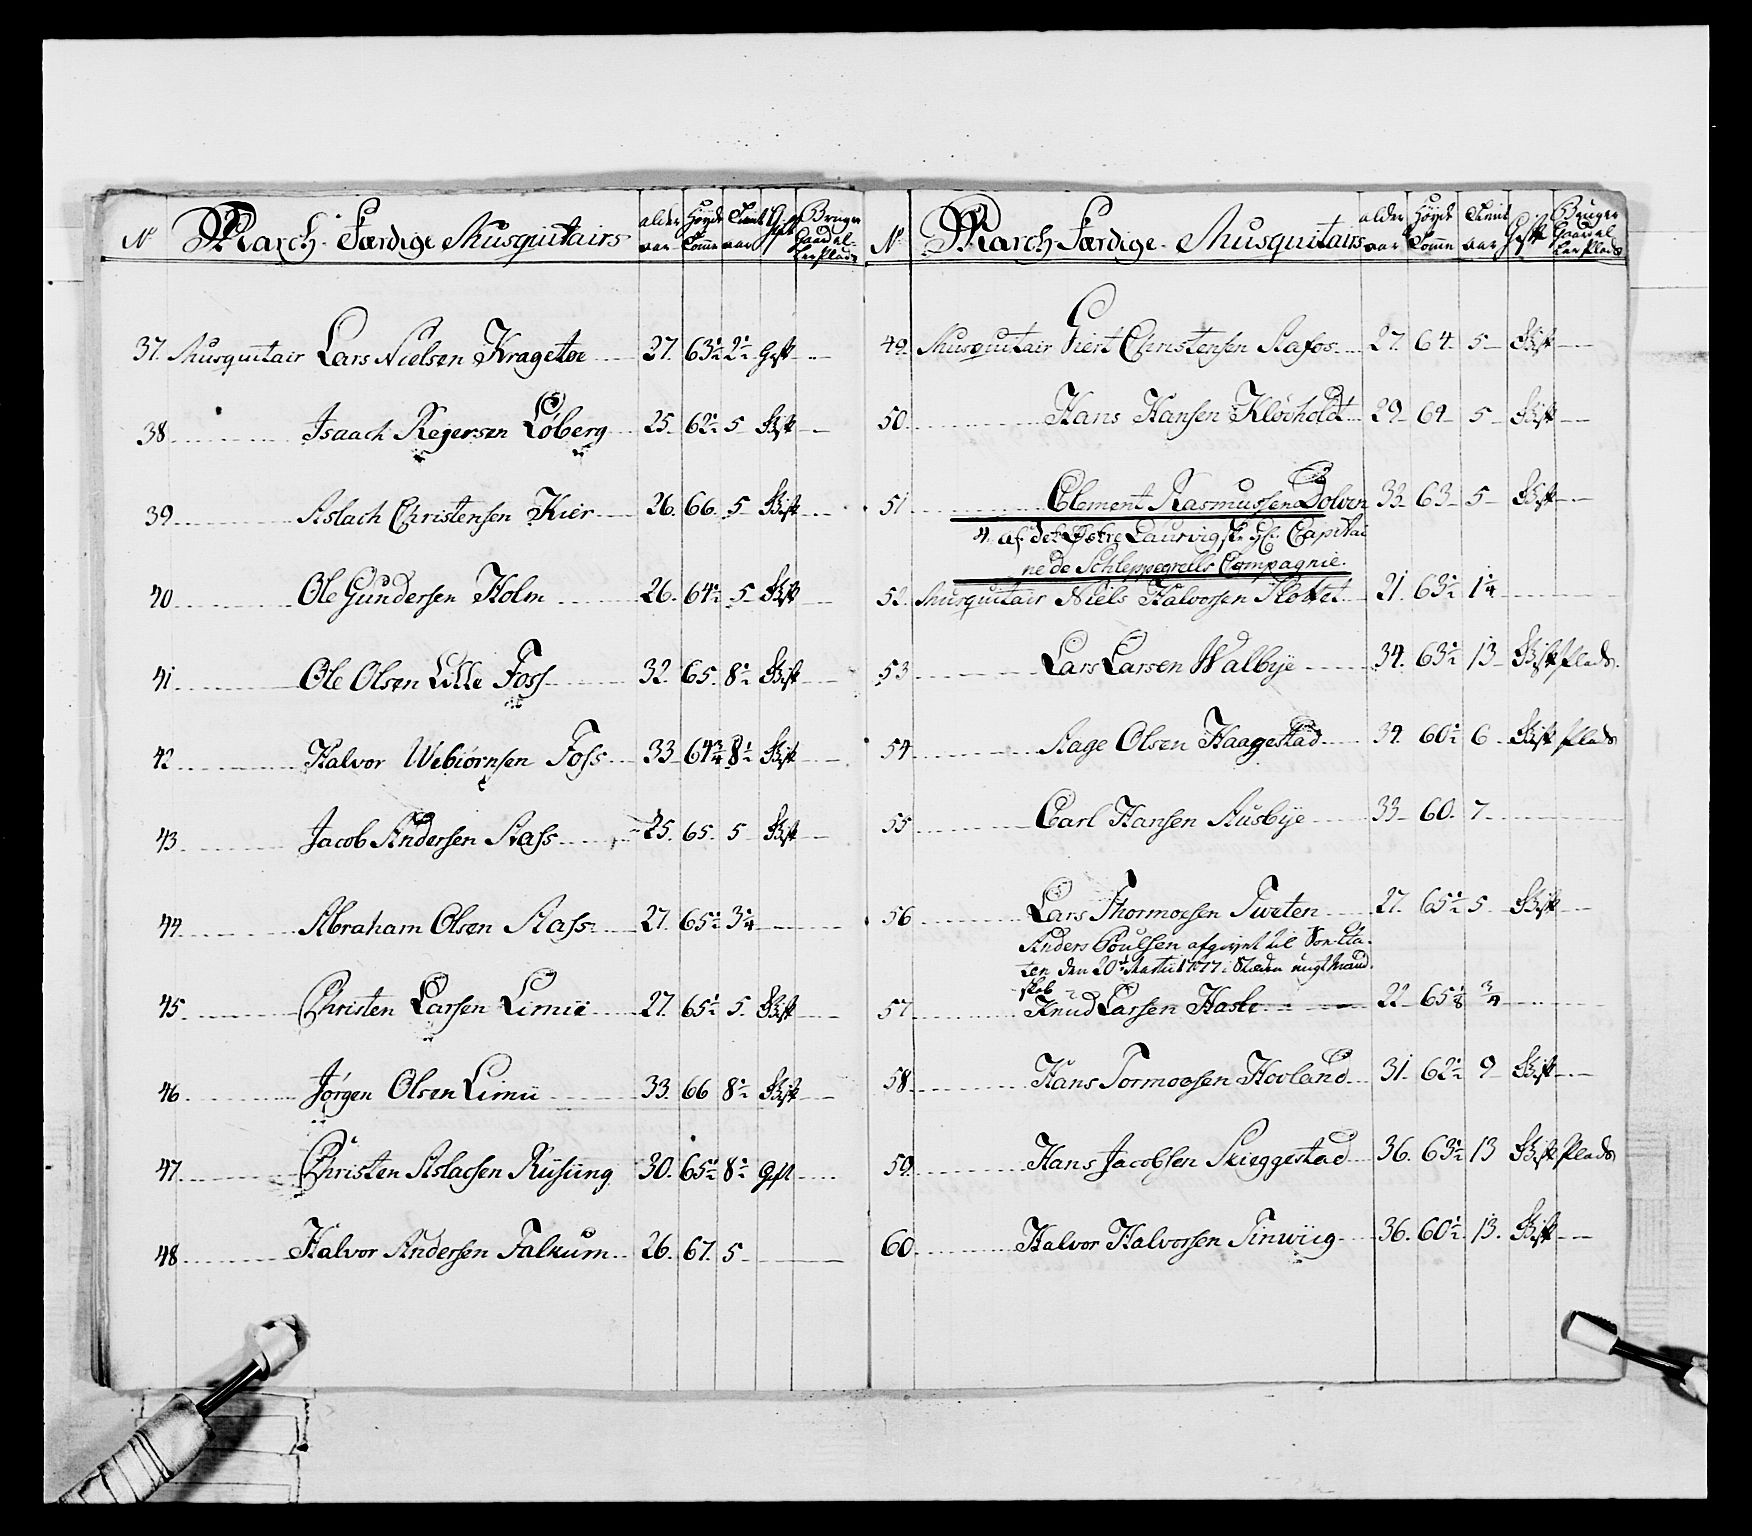 No March. Færdige Musquitairs alder aar Høyde Tomme Tient aar Gift Bruger Gaard el- ler Plads
37. Musquitair Lars Nielsen Kragetoe 27. 63½ 2½ Gift
38 Isaach Rejersen Løberg 25. 62½ 5
39 Aslach Christensen Kier 26. 66. 5
40 Ole Gundersen Holm 26. 64½ 5
41 Ole Olsen Lille Foss 32. 65. 8½
42 Halvor Webiørnsen Foss 33 64¾ 8½
43 Jacob Andersen Aass 25. 65. 5
44 Abraham Olsen Aass 27. 65½ 3¼
45 Christen Larsen Limii 27. 65½ 5.
46 Jørgen Olsen Limii 33. 66 8½
47 Christen Aslacsen Riisiing 30. 65½ 8½ Gift
48 Halvor Andersen Falkum 26. 67. 5
No March Færdige. Musquitairs alder aar Høyde Tomme Tient aar Gift Bruger Gaard el ler Plads
49. Musquitair Giert Christensen Aafos 27. 64. 5
50. Hans Hansen Kløvholdt 29 64 5
51 Clement Rasmussen Dolven 33 63 5
4. af det Yttre Laurvigske Capitai
ne de Schleppegrells Compagnie.
52. Musquitair Niels Halvorsen Slottet 21 63½ 1¼
53 Lars Larsen Walbye 34. 63½ 13 Plads
54 Aage Olsen Haagestad 34. 60½ 6 Plads
55 Carl Hansen Ausbye 33 60. 7
56 Lars Thormoesen Tveten 27. 65½ 5
Anders Poulsen afgivet til
ten den 20de Martii 1777
skab
57 Knud Larsen Haske 22 65⅛ ¾
58. Hans Tormoesen Hovland 31. 62½ 9
59. Hans Jacobsen Skieggestad 36. 63½ 13 Plads
60 Halvor Halvorsen Tinwiig 36. 60½ 13.